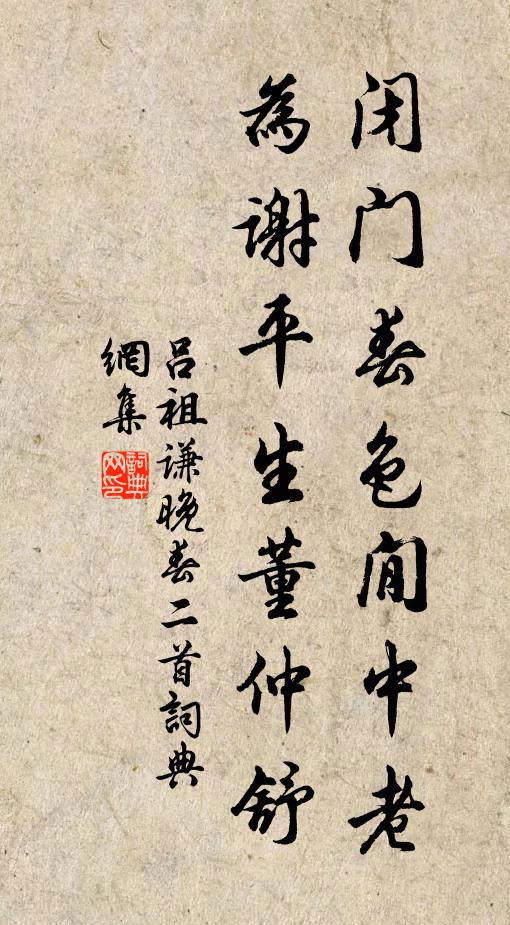 闭门春色闲中老
為谢平生董仲舒
吕祖谦晚春二首詞典
網集
詞典网印